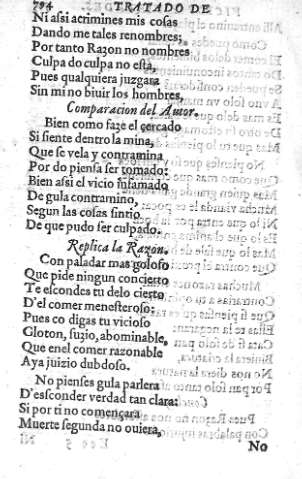 794 TRATADO DE
Ni assi acrimines mis cosas
Dando me tales renombres;
Por tanto Razon no nombres
Culpa do culpa no esta,
Pues qualquiera juzgara
Sin mi no biuir los hombres,
Comparacion del Autor.
Bien como faze el cercado
Si siente dentro la mina,
Que se vela y contramina
Por do piensa ser tomado:
Bien assi el vicio infamado
De gula contramino,
Segun las cosas sintio
De que pudo ser culpado.
Replica la Razon.
Con paladar mas goloso
Que pide ningun concierto
Te escondes tu delo cierto
D'el comer menesteroso:
Pues co digas tu vicioso
Gloton, suzio, abominable,
Que enel comer razonable
Aya juizio dubdoso.
No pienses gula parlera
D'esconder verdad tan clara:
Si por ti no començara
Muerte segunda no ouiera,
No